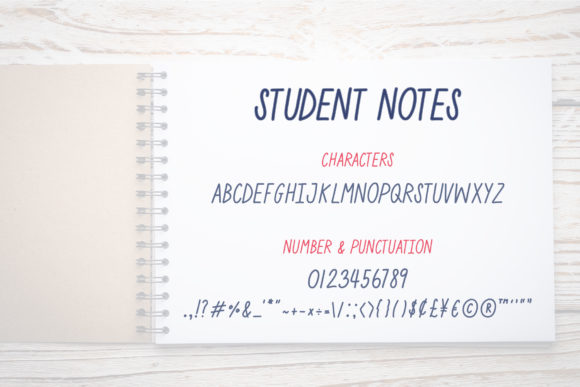 STUDENT NOTES
CHARACTERS
ABCDEFGHIJKLMNOPQRSTUVWXYZ
NUMBER & PUNCTUATION
0123456789
.,!?#%&_'*"~+-×÷=\/:;<>{}()$¢£¥€©®™''""